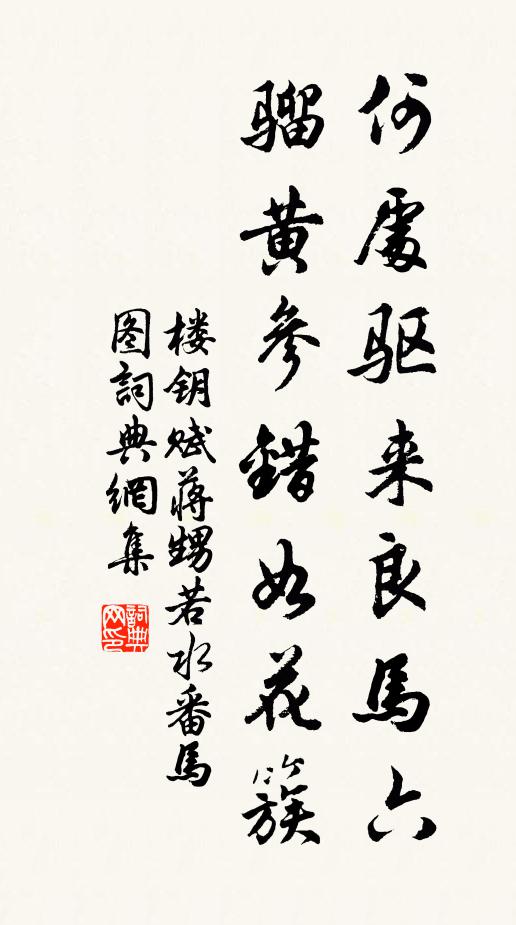 何處驱来良馬六
骝黄參錯如花簇
楼钥赋蒋甥若水番馬
图詞典網集
詞典网印